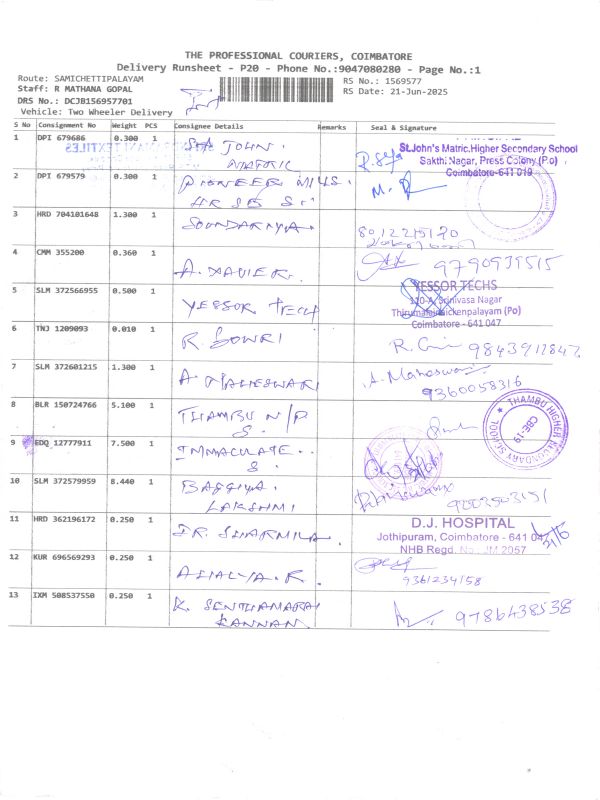 THE PROFESSIONAL COURIERS, COIMBATORE
Delivery Runsheet - P20 - Phone No.:9047080280 - Page No.:1
Route: SAMICHETTIPALAYAM RS No.: 1569577
Staff: R MATHANA GOPAL RS Date: 21-Jun-2025
DRS No.: DCJB156957701
Vehicle: Two Wheeler Delivery
S No Consignment No Weight PCS Consignee Details Remarks Seal & Signature
1 DPI 679686 0.300 1 JOHN
St.John's Matric.Higher Secondary School
Sakthi Nagar, Press Colony.(Po)
Coimbatore-641 019
2 DPI 679579 0.300 1 PIONEER MILLS.
HR SE S.
3 HRD 704101648 1.300 1 SOUNDARIYA.
4 CMM 355200 0.360 1 A. XAVIER. 9790939515
5 SLM 372566955 0.500 1 YESSOR TECH
YESSOR TECHS
110-A, Srinivasa Nagar
Thirumalainaickenpalayam (Po)
Coimbatore - 641 047
6 TNJ 1209093 0.010 1 R. GOWRI
7 SLM 372601215 1.300 1 A. MAHESWARI A. Maheswari
9360058316
8 BLR 150724766 5.100 1 THAMBU N/P
S.
THAMBU HIGHER SECONDARY SCHOOL
CBE-19
9 EDQ 12777911 7.500 1 IMMACULATE.
S.
10 SLM 372579959 8.440 1 BAGGIYA.
LAKSHMI
11 HRD 362196172 0.250 1 DR. SHARMILA.
D.J. HOSPITAL
Jothipuram, Coimbatore - 641 047
NHB Regd. No.: JM 2057
12 KUR 696569293 0.250 1 9361234158
13 IXM 508537550 0.250 1 K. SENTHAMARAI
KANNAN 9786438538